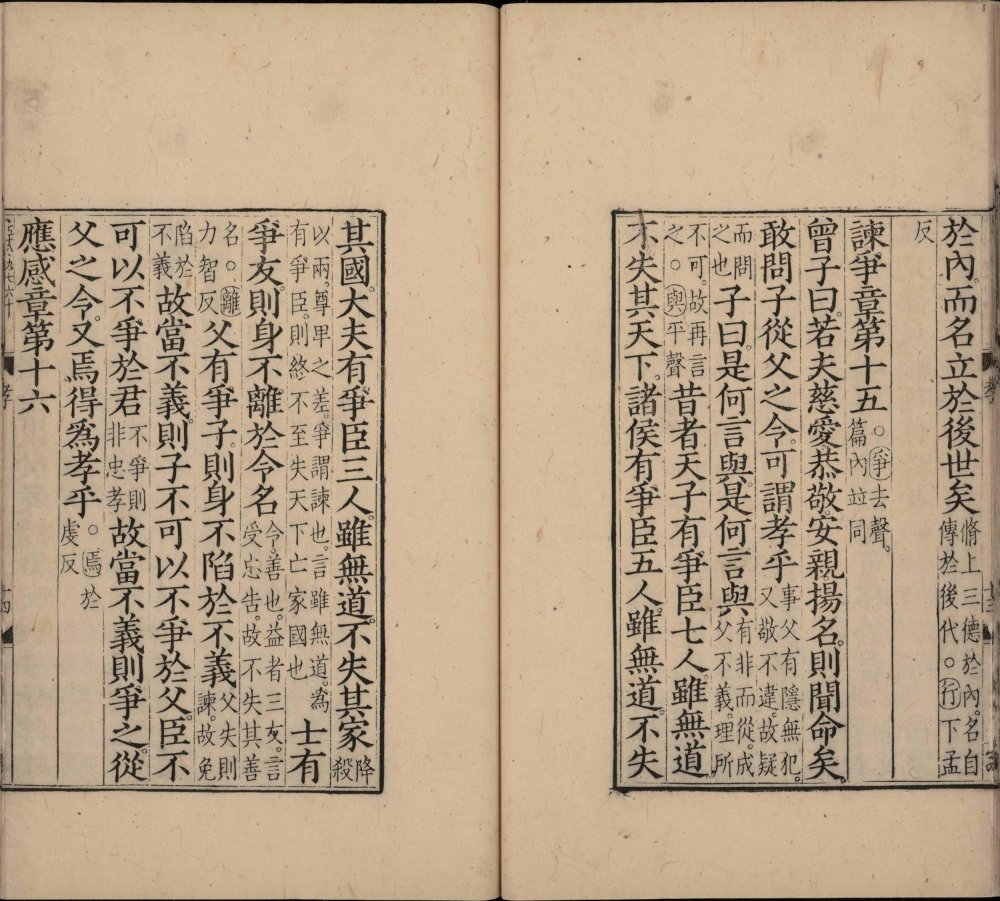 於內。而名立於後世矣脩上三德於內。名自傳於後代。○行下孟
反
諫爭章第十五○爭去聲。篇內竝同
曾子曰。若夫慈愛恭敬。安親揚名。則聞命矣。
敢問子從父之令。可謂孝乎事父有隱無犯。又敬不違。故疑
而問之也子曰。是何言與。是何言與有非而從。成父不義。理所
不可。故再言之。○與平聲昔者天子有爭臣七人。雖無道。
不失其天下。諸侯有爭臣五人。雖無道。不失
其國。大夫有爭臣三人。雖無道。不失其家降殺
以兩。尊卑之差。爭謂諫也。言雖無道。為有爭臣。則終不至失天下亡家國也士有
爭友。則身不離於令名令善也。益者三友。言受忠告。故不失其善
名。○離力智反父有爭子。則身不陷於不義父失則諫。故免
陷於不義故當不義。則子不可以不爭於父。臣不
可以不爭於君不爭則非忠孝故當不義則爭之。從
父之令。又焉得為孝乎。○焉於虔反
應感章第十六
孝
十四